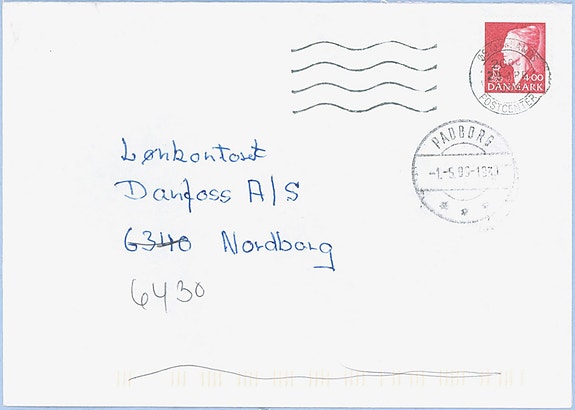 4.00
DANMARK
POSTCENTER
PADBORG
Lønkontoret
Danfoss A/S
6340 Nordborg
6430